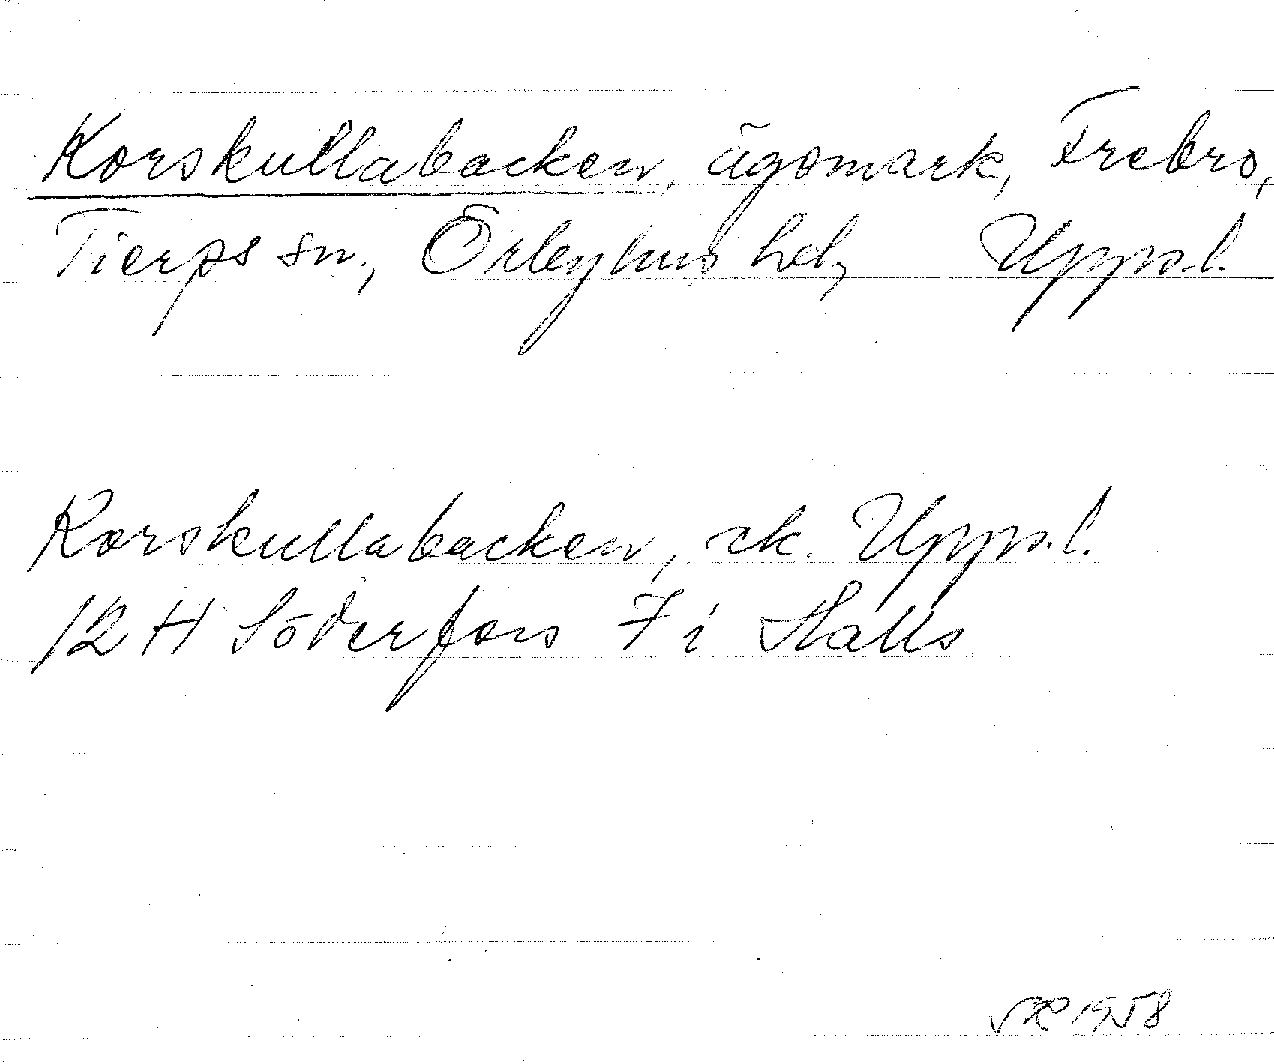 Korskullabacken, ägomark, Frebro,
Tierps sn, Örbyhus hd, Upps.l.
Korskullabacken, ek. Upps.l.
12 H Söderfors 7 i Halls
1958